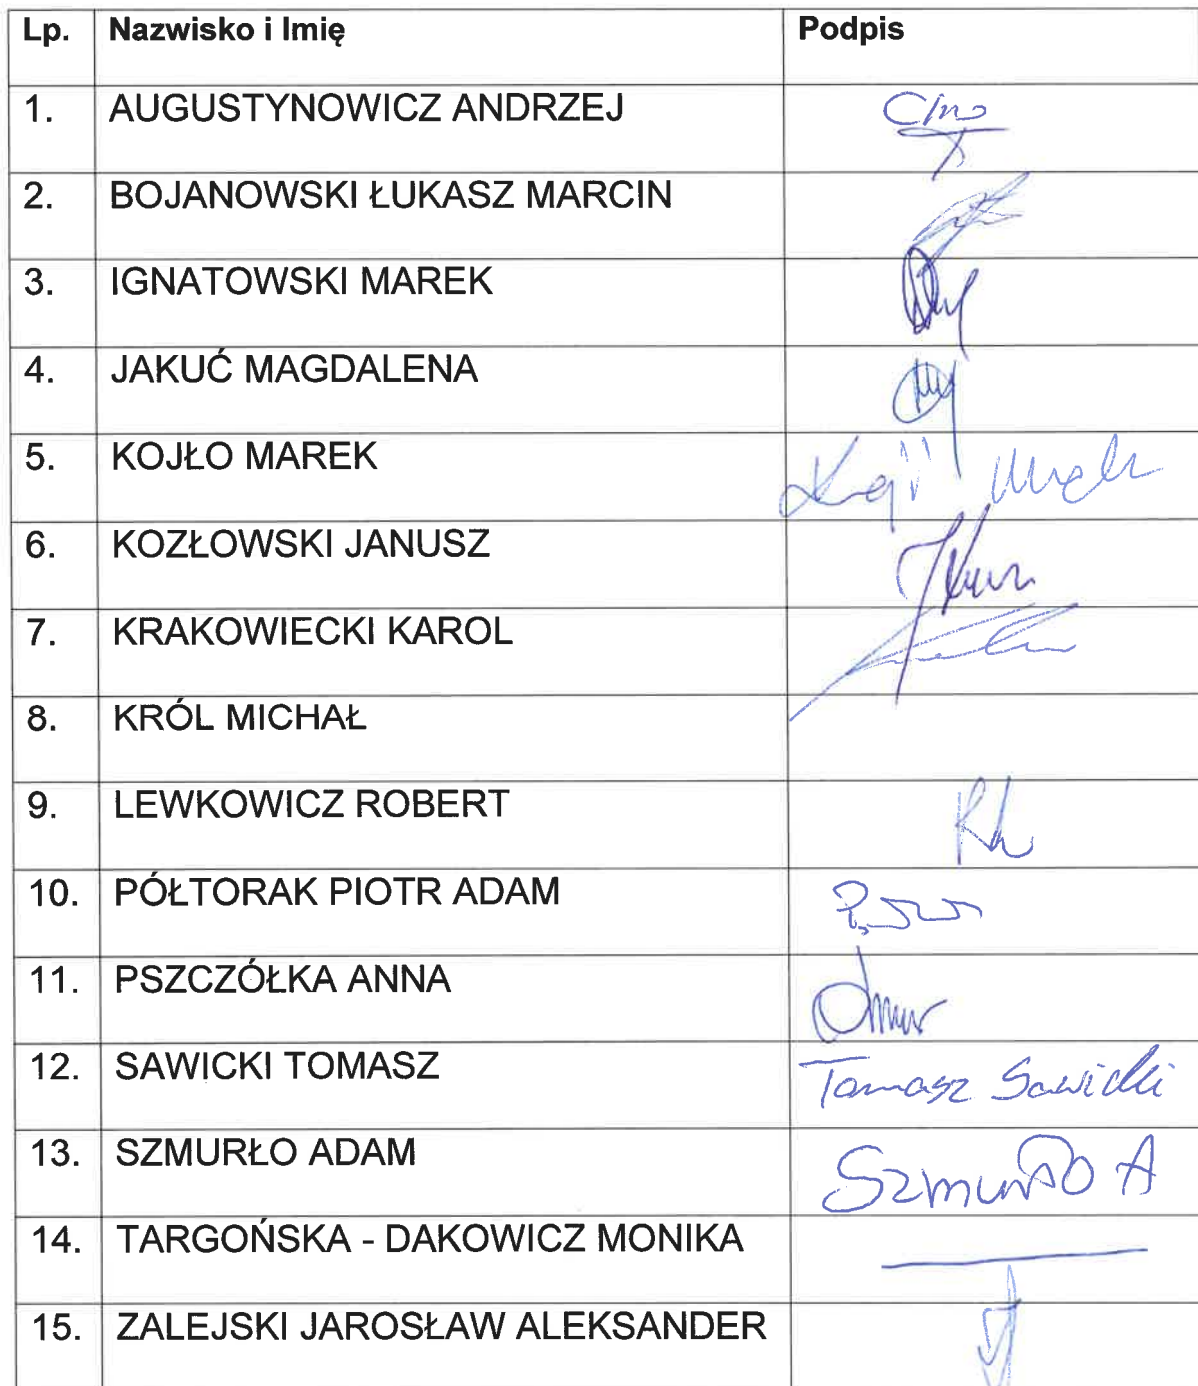 Lp. Nazwisko i Imię Podpis
1. AUGUSTYNOWICZ ANDRZEJ
2. BOJANOWSKI ŁUKASZ MARCIN
3. IGNATOWSKI MAREK
4. JAKUĆ MAGDALENA
5. KOJŁO MAREK
6. KOZŁOWSKI JANUSZ
7. KRAKOWIECKI KAROL
8. KRÓL MICHAŁ
9. LEWKOWICZ ROBERT
10. PÓŁTORAK PIOTR ADAM
11. PSZCZÓŁKA ANNA
12. SAWICKI TOMASZ Tomasz Sawicki
13. SZMURŁO ADAM Szmurło A
14. TARGOŃSKA - DAKOWICZ MONIKA
15. ZALEJSKI JAROSŁAW ALEKSANDER